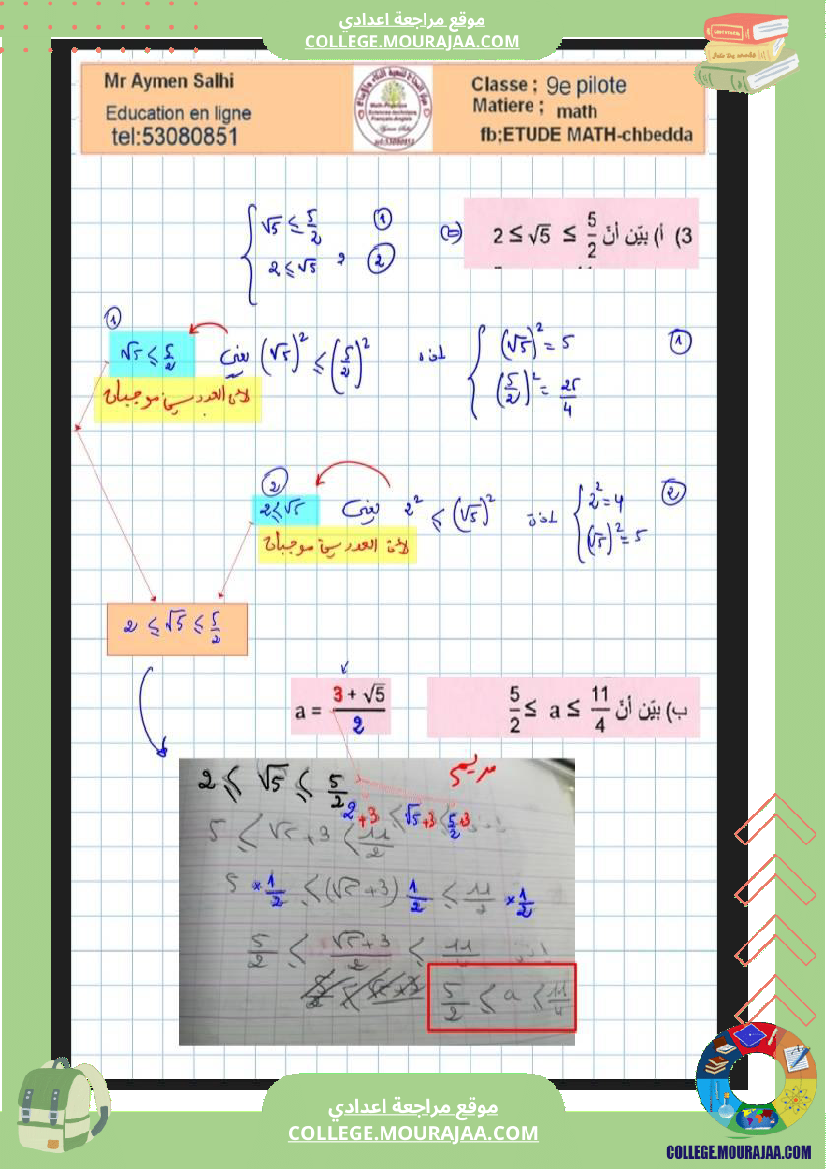 موقع مراجعة اعدادي
COLLEGE.MOURAJAA.COM
Mr Aymen Salhi
Education en ligne
tel:53080851
Classe ; 9e pilote
Matiere ; math
fb;ETUDE MATH-chbedda
3) أ) بيّن أنّ 2 ≤ √5 ≤ 5/2
√5 ≤ 5/2 ①
2 ≤ √5 ②
①
(√5)² = 5
(5/2)² = 25/4
(√5)² ≤ (5/2)² يعني
① √5 ≤ 5/2
لأن العددين موجبان
②
2² = 4
(√5)² = 5
2² ≤ (√5)² يعني
② 2 ≤ √5
لأن العددين موجبان
2 ≤ √5 ≤ 5/2
ب) بيّن أنّ 5/2 ≤ a ≤ 11/4
a = (3 + √5)/2
مريم
2 ≤ √5 ≤ 5/2
2+3 ≤ √5+3 ≤ 5/2+3
5 ≤ √5+3 ≤ 11/2
5 × 1/2 ≤ (√5+3) 1/2 ≤ 11/2 × 1/2
5/2 ≤ (√5+3)/2 ≤ 11
5/2 ≤ a ≤ 11/4
موقع مراجعة اعدادي
COLLEGE.MOURAJAA.COM
COLLEGE.MOURAJAA.COM